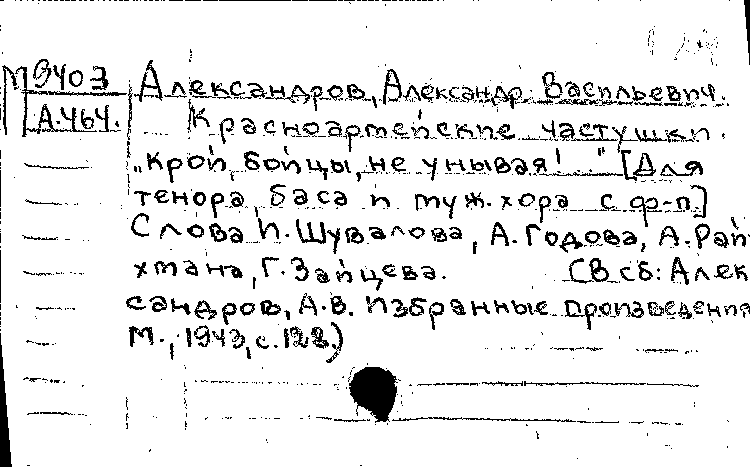 М9403 Александров, Александр Васильевич.
А.464. Красноармейские частушки.
„Крой, бойцы, не унывая!.." [Для
тенора, баса и муж. хора с ф-п.]
Слова И. Шувалова, А. Годова, А. Рай
хмана, Г. Зайцева. (В сб: Алек
сандров, А.В. Избранные произведения
М., 1943, с.